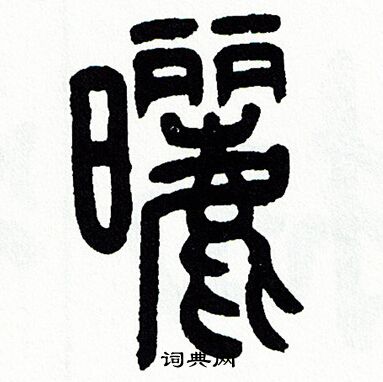 曬
词典网